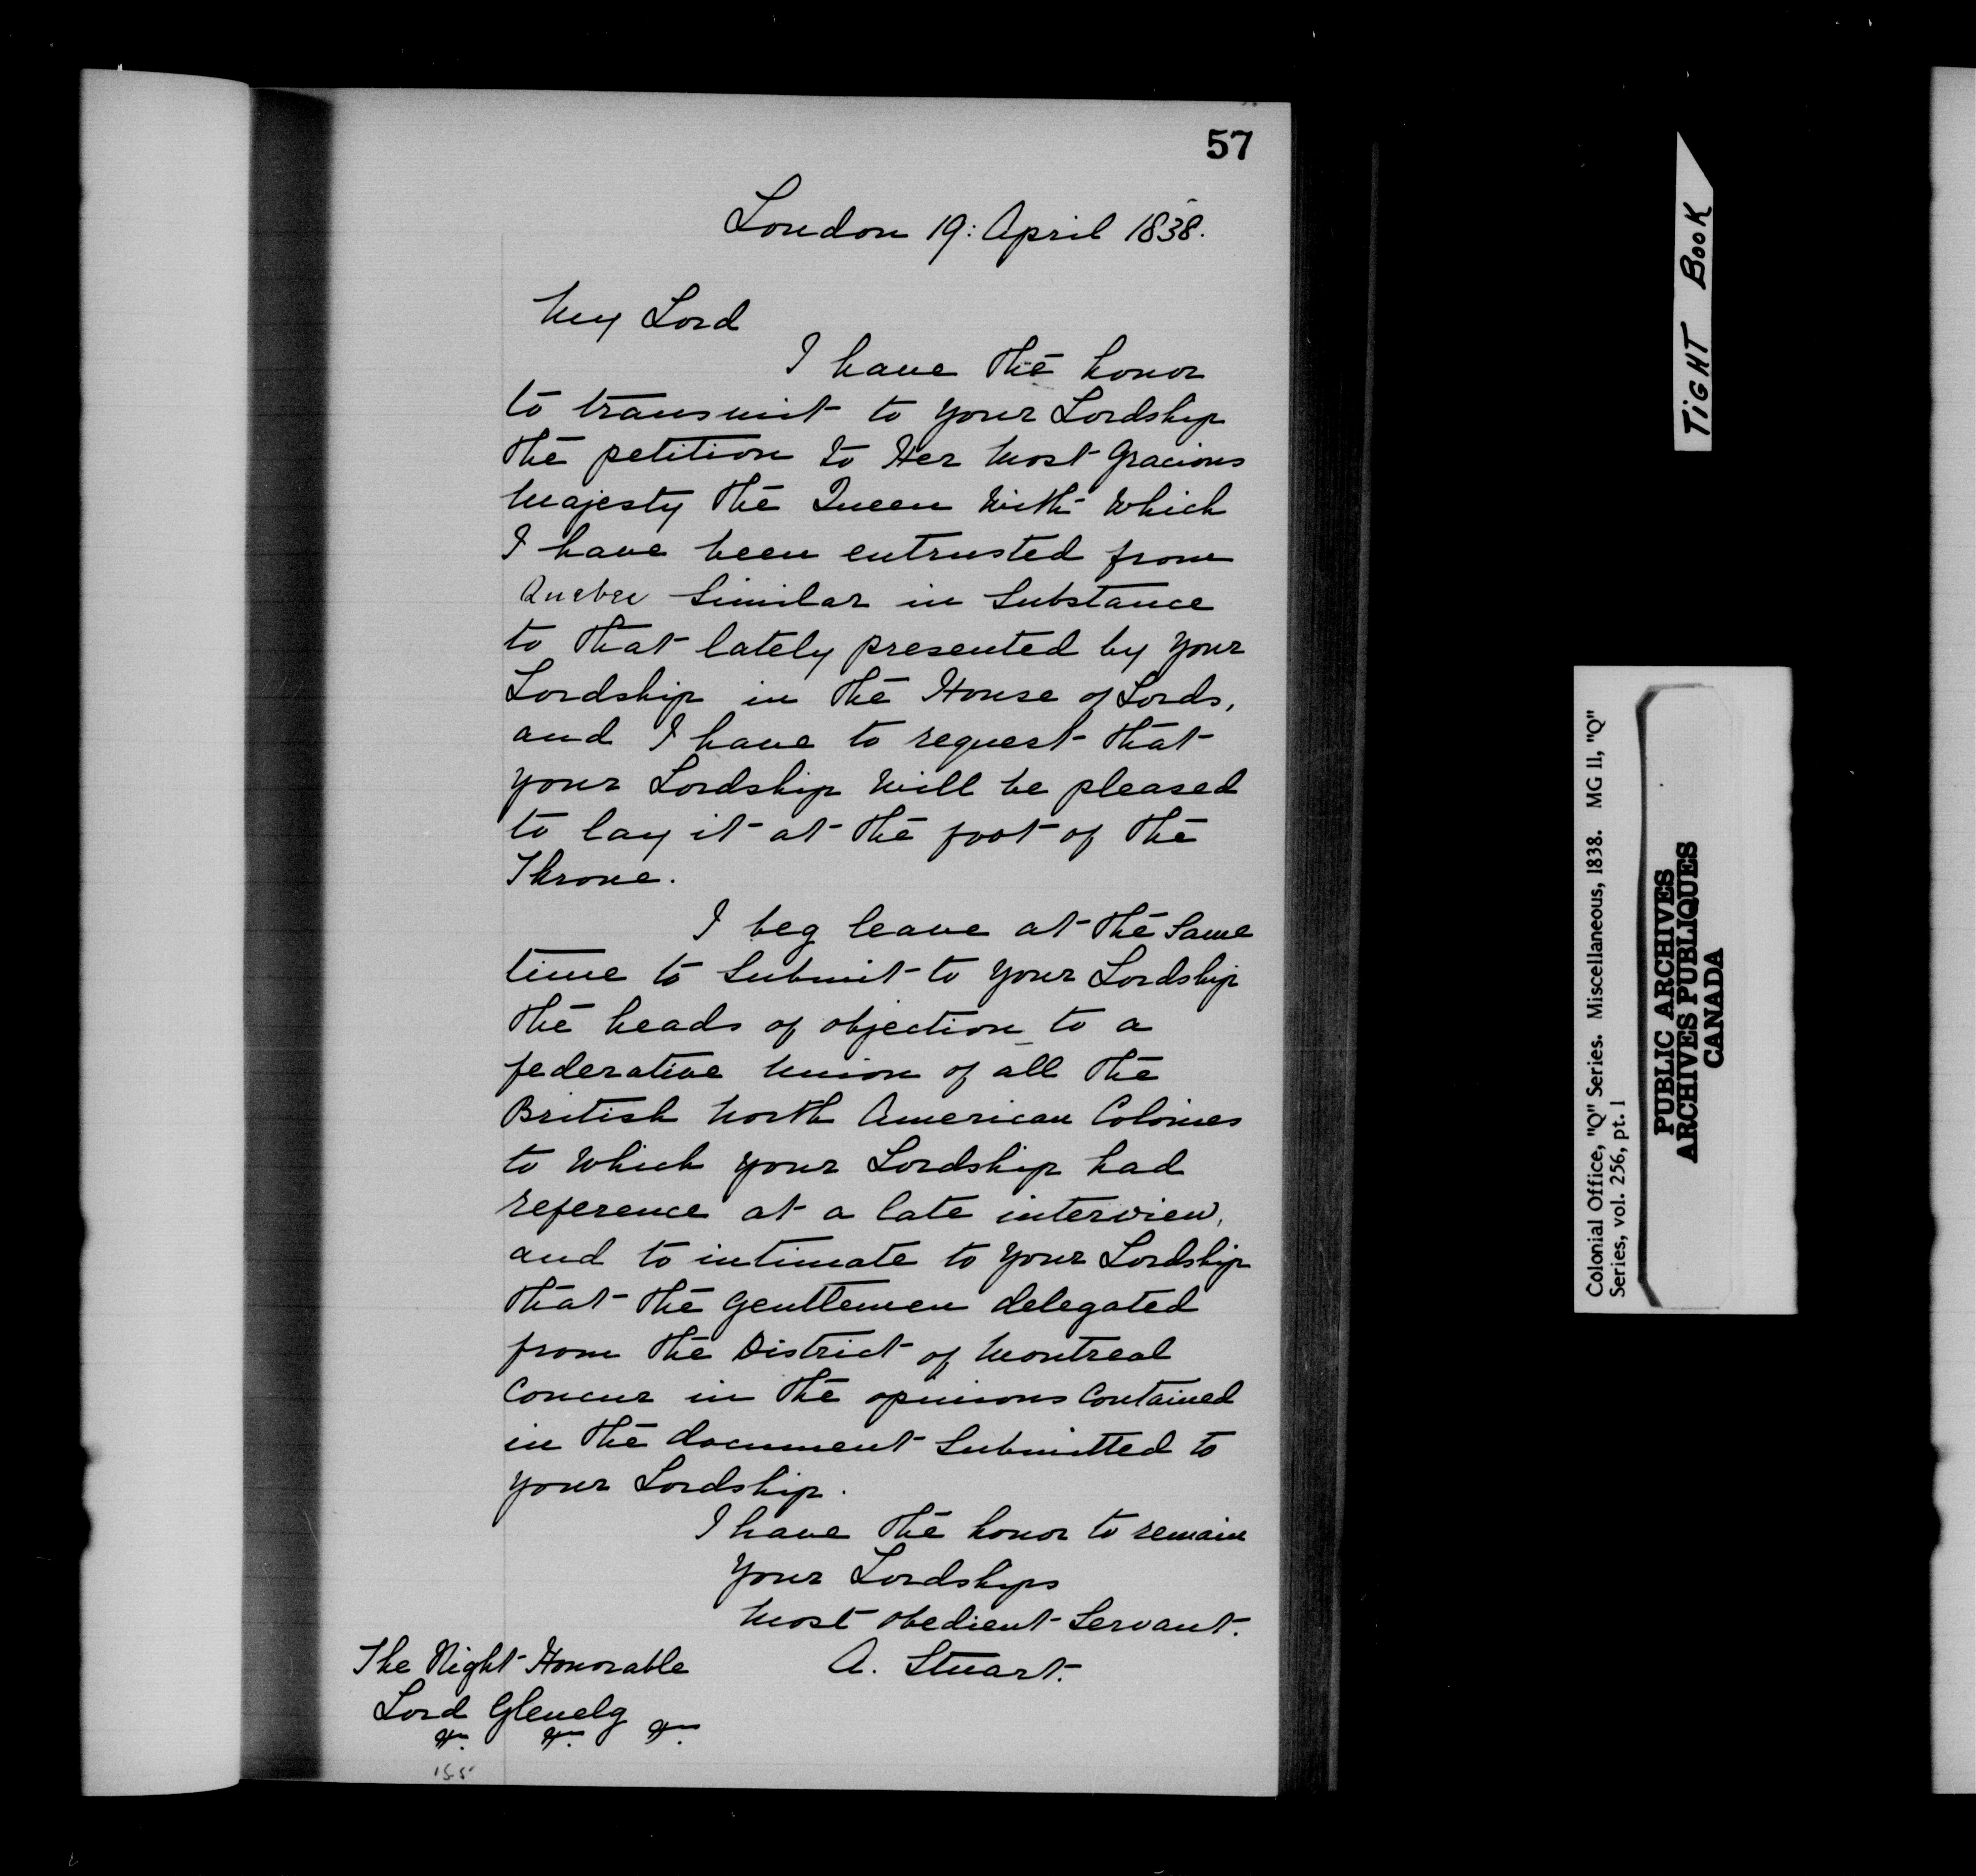 57
London 19: April 1838.
My Lord
I have the honor
to transmit to your Lordship
the petition to Her Most Gracious
Majesty the Queen with which
I have been entrusted from
Quebec similar in substance
to that lately presented by your
Lordship in the House of Lords,
and I have to request that
your Lordship will be pleased
to lay it at the foot of the
Throne.
I beg leave at the same
time to submit to your Lordship
the heads of objection to a
federative Union of all the
British North American Colonies
to which your Lordship had
reference at a late interview,
and to intimate to your Lordship
that the gentlemen delegated
from the District of Montreal
concur in the opinions contained
in the document submitted to
your Lordship.
I have the honor to remain
Your Lordships
Most obedient Servant.
A. Stuart.
The Right Honorable
Lord Glenelg
155
TIGHT BOOK
Colonial Office, "Q" Series. Miscellaneous, 1838. MG 11, "Q"
Series, vol. 256, pt. 1
PUBLIC ARCHIVES
ARCHIVES PUBLIQUES
CANADA